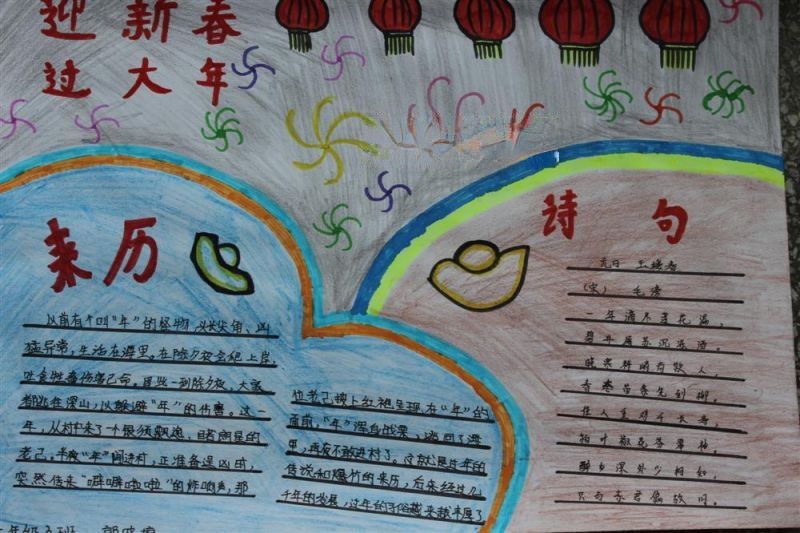 迎新春
过大年
来历
以前有个叫"年"的怪物，头长尖角、凶
猛异常，生活在海里。在除夕夜会爬上岸
吃食牲畜伤害己命，因此一到除夕夜，大家
都逃在深山，以躲避"年"的伤害。这一
年，从村中来了个银须飘逸、目若朗星的
老己，半夜"年"闯进村，正准备逞凶时，
突然传来"噼噼啪啪"的炸响声，那
也老己披上红袍呈现在"年"的
面前，"年"浑身战栗，逃回了海
里，再夜不敢进村了。这就是过年的
传说和爆竹的来历，后来经过几
千年的发展，过年的习俗越来越丰厚了
诗句
元日 玉楼春
（宋） 毛滂
一年滴尽莲花漏，
碧井屠苏沉冻酒。
晓寒料峭尚欺人，
春态苗条先到柳。
佳人重劝千长寿，
柏叶椒花芬翠袖。
醉乡深处少相知，
只与东君偏故旧。
年级五班